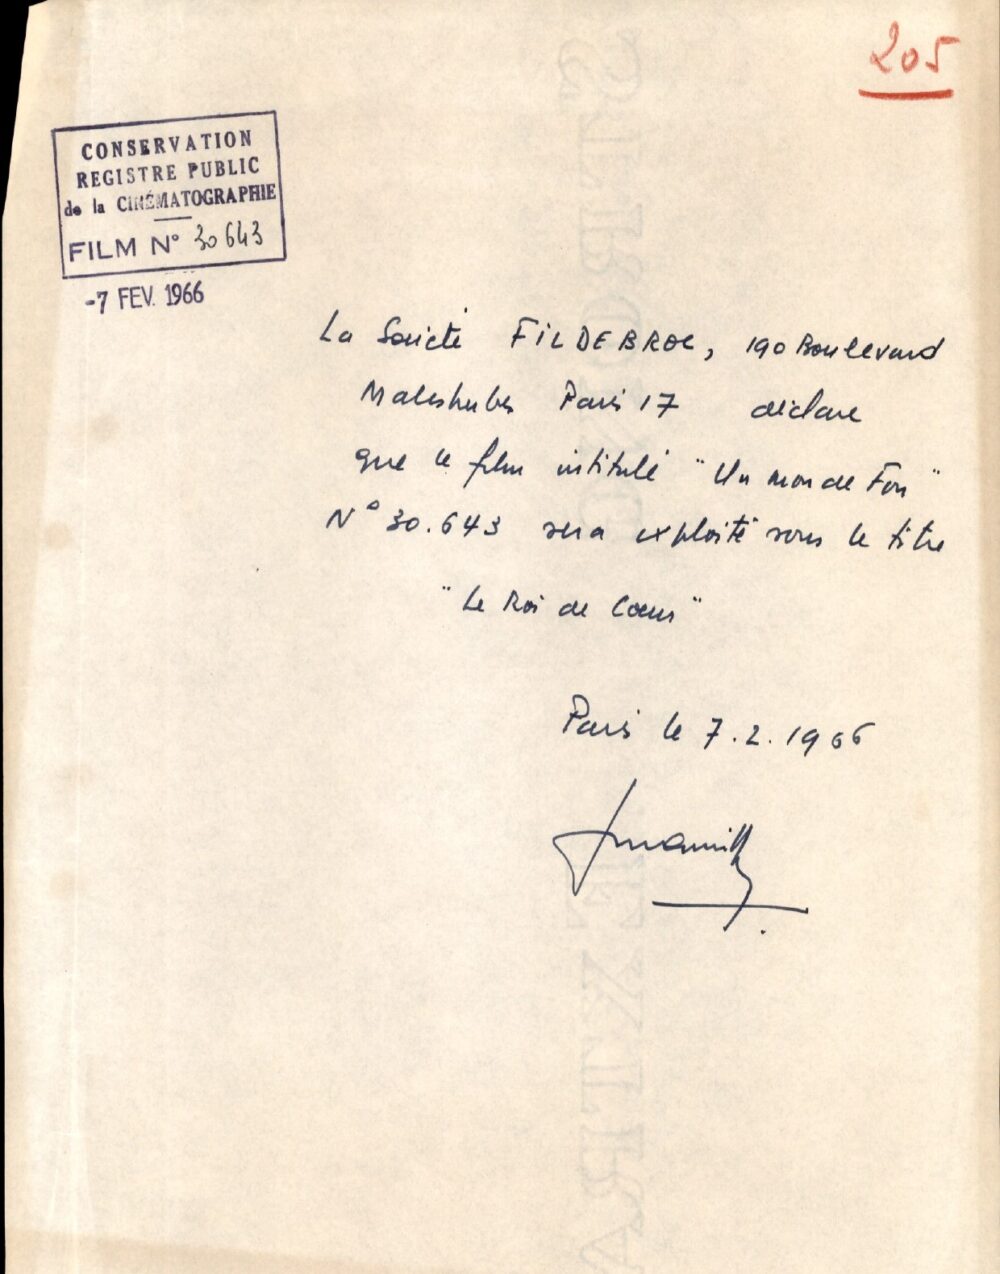 205
CONSERVATION
REGISTRE PUBLIC
de la CINÉMATOGRAPHIE
FILM N° 30643
-7 FEV. 1966
La Société FILDEBROC, 190 Boulevard
Malesherbes Paris 17 déclare
que le film intitulé "Un monde Fou"
N° 30.643 sera exploité sous le titre
"Le Roi de Coeur"
Paris le 7.2.1966